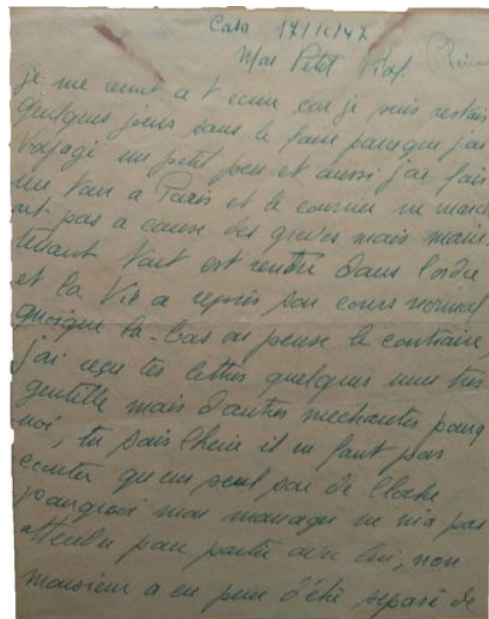 Casa 17/11/47
Mon Petit Piaf
je me remet a t ecrire car je suis restais
quelques jours sans le faire parceque j'ai
Voyagé un petit peu et aussi j'ai fais
un tour a Paris et le courrier ne march
ait pas a cause des greves mais main
tenant tout est rentré dans l'ordre
et la Vie a repris son cours normal
quoique la-bas on pense le contraire,
j'ai reçu tes lettres quelques unes tres
gentille mais d'autres mechantes pourq
uoi, tu sais Cherie il ne faut pas
ecouter qu'un seul son de Cloche
pourquoi mon manager ne m'a pas
attendu pour partir avec lui, non
monsieur a eu peur d'être separé de